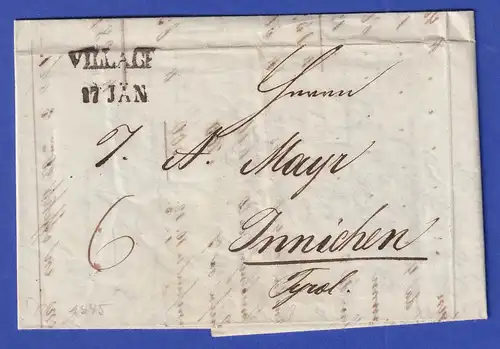 VILLACH
17 JAN
Herrn
J. A. Mayr
6
Innichen
Tyrol
1845